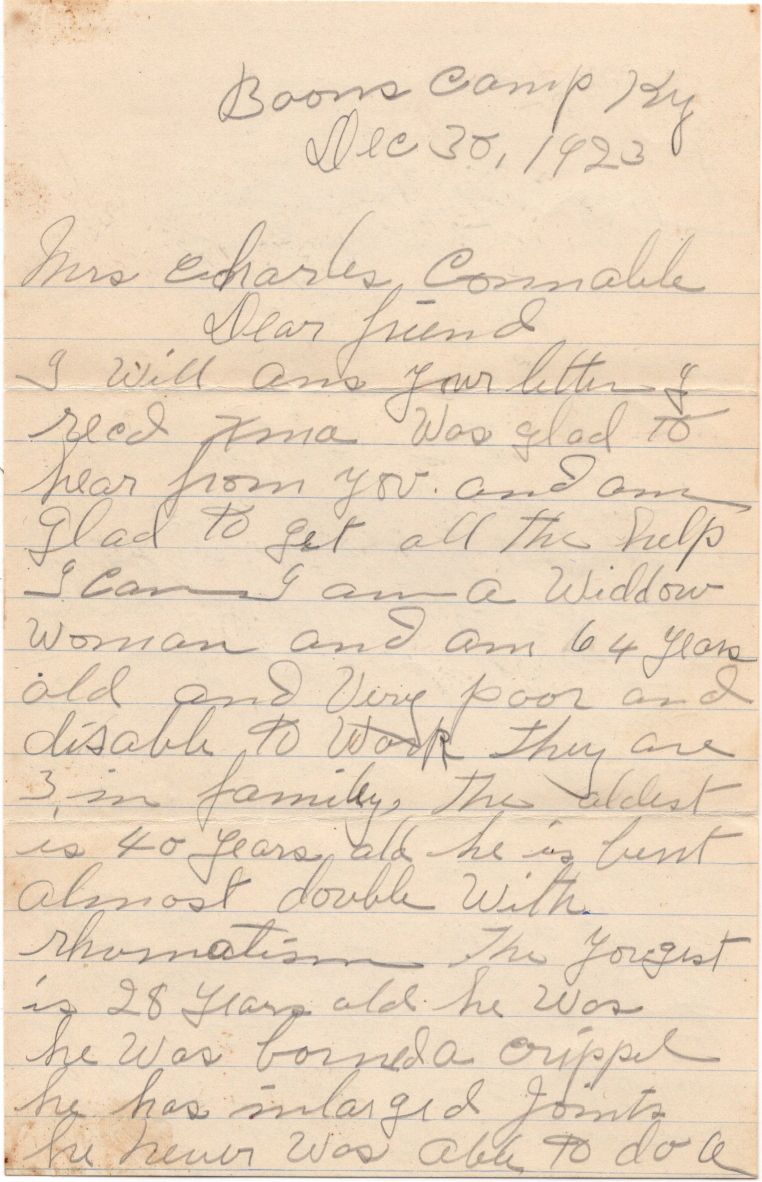 Boons Camp Ky
Dec 30, 1923
Mrs Charles Connable
Dear friend
I Will ans your letter I
recd xma Was glad to
hear from you. and am
glad to get all the help
I can I am a Widdow
Woman and am 64 years
old and Very poor and
disable to Work they are
3, in family, the oldest
is 40 years old he is bent
almost double With
rhumatism The yougest
is 28 years old. he Was
he Was borned a crippel
he has inlarged Joints
he never Was able to do a